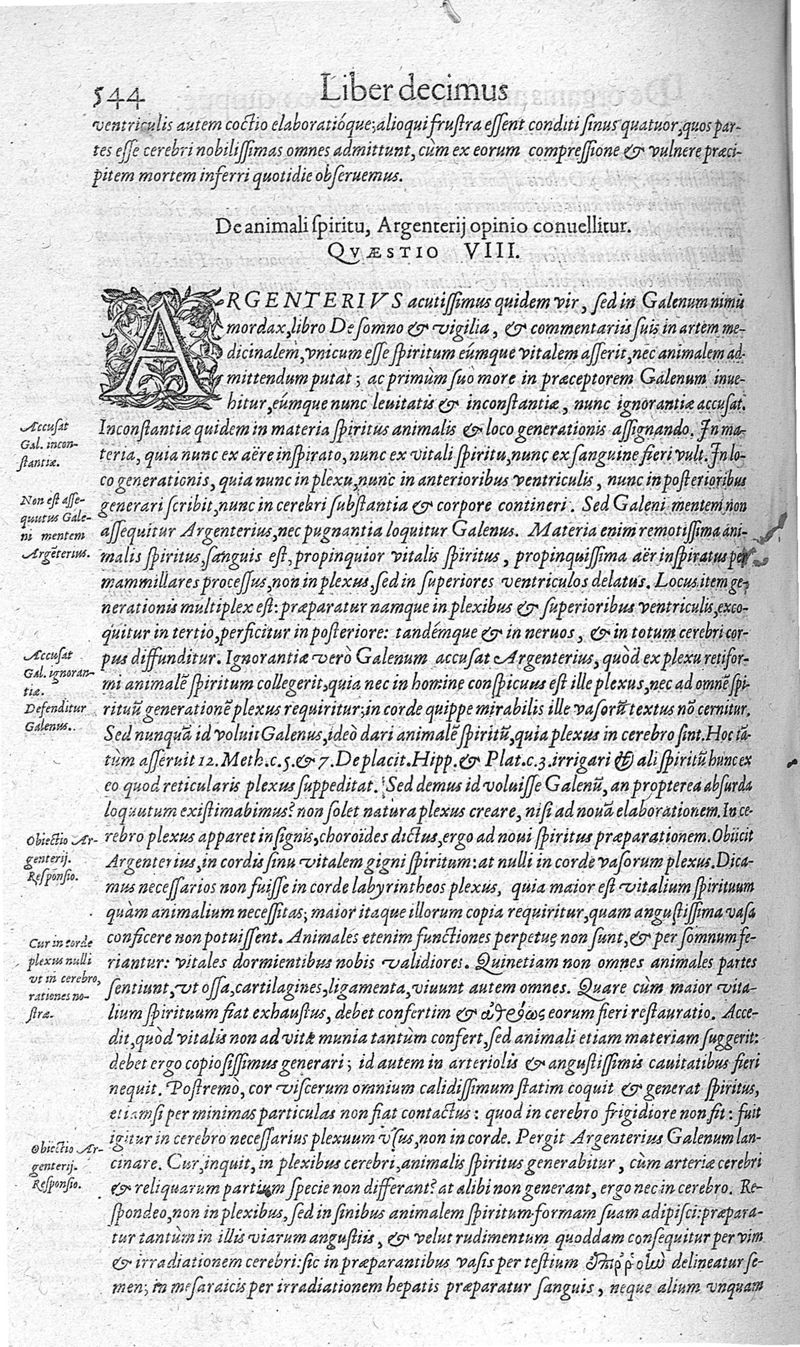 544
Liber decimus
ventriculis autem coctio elaboratióque; alioqui frustra essent conditi sinus quatuor, quos par-
tes esse cerebri nobilissimas omnes admittunt, cùm ex eorum compressione & vulnere præci-
pitem mortem inferri quotidie obseruemus.
De animali spiritu, Argenterij opinio conuellitur.
QVÆSTIO VIII.
ARGENTERIVS acutissimus quidem vir, sed in Galenum nimiū
mordax, libro De somno & vigilia, & commentariis suis in artem me-
dicinalem, vnicum esse spiritum eúmque vitalem asserit, nec animalem ad-
mittendum putat; ac primùm suo more in præceptorem Galenum inue-
hitur, eúmque nunc leuitatis & inconstantiæ, nunc ignorantiæ accusat.
Accusat
Gal. incon-
stantiæ.
Inconstantiæ quidem in materia spiritus animalis & loco generationis assignando. In ma-
teria, quia nunc ex aëre inspirato, nunc ex vitali spiritu, nunc ex sanguine fieri vult. In lo-
co generationis, quia nunc in plexu, nunc in anterioribus ventriculis, nunc in posterioribus
Non est asse-
quutus Gale-
ni mentem
Argēterius.
generari scribit, nunc in cerebri substantia & corpore contineri. Sed Galeni mentem non
assequitur Argenterius, nec pugnantia loquitur Galenus. Materia enim remotissima ani-
malis spiritus, sanguis est, propinquior vitalis spiritus, propinquissima aër inspiratus per
mammillares processus, non in plexus, sed in superiores ventriculos delatus. Locus item ge-
nerationis multiplex est: præparatur namque in plexibus & superioribus ventriculis, exco-
quitur in tertio, perficitur in posteriore: tandémque & in neruos, & in totum cerebri cor-
Accusat
Gal. ignoran-
tiæ.
Defenditur
Galenus.
pus diffunditur. Ignorantiæ verò Galenum accusat Argenterius, quòd ex plexu retifor-
mi animalē spiritum collegerit, quia nec in homine conspicuus est ille plexus, nec ad omnē spi-
rituū generationē plexus requiritur; in corde quippe mirabilis ille vasorū textus nō cernitur.
Sed nunquā id voluit Galenus, ideò dari animalē spiritū, quia plexus in cerebro sint. Hoc tā-
tùm asseruit 12. Meth. c. 5. & 7. De placit. Hipp. & Plat. c. 3. irrigari & ali spiritū hunc ex
eo quod reticularis plexus suppeditat. Sed demus id voluisse Galenū, an propterea absurda
loquutum existimabimus? non solet natura plexus creare, nisi ad nouā elaborationem. In ce-
Obiectio Ar-
genterij.
Responsio.
rebro plexus apparet insignis, choroides dictus, ergo ad noui spiritus præparationem. Obiicit
Argenterius, in cordis sinu vitalem gigni spiritum: at nulli in corde vasorum plexus. Dica-
mus necessarios non fuisse in corde labyrintheos plexus, quia maior est vitalium spirituum
quàm animalium necessitas; maior itaque illorum copia requiritur, quam angustissima vasa
Cur in corde
plexus nulli
vt in cerebro,
rationes no-
stræ.
conficere non potuissent. Animales etenim functiones perpetuę non sunt, & per somnum fe-
riantur: vitales dormientibus nobis validiores. Quinetiam non omnes animales partes
sentiunt, vt ossa, cartilagines, ligamenta, viuunt autem omnes. Quare cùm maior vita-
lium spirituum fiat exhaustus, debet confertim & ἀθρόως eorum fieri restauratio. Acce-
dit, quòd vitalis non ad vitæ munia tantùm confert, sed animali etiam materiam suggerit:
debet ergo copiosissimus generari; id autem in arteriolis & angustissimis cauitatibus fieri
nequit. Postremò, cor viscerum omnium calidissimum statim coquit & generat spiritus,
etiamsi per minimas particulas non fiat contactus: quod in cerebro frigidiore non fit: fuit
igitur in cerebro necessarius plexuum vsus, non in corde. Pergit Argenterius Galenum lan-
Obiectio Ar-
genterij.
Responsio.
cinare. Cur, inquit, in plexibus cerebri, animalis spiritus generabitur, cùm arteriæ cerebri
& reliquarum partium specie non differant? at alibi non generant, ergo nec in cerebro. Re-
spondeo, non in plexibus, sed in sinibus animalem spiritum formam suam adipisci: præpara-
tur tantùm in illis viarum angustiis, & velut rudimentum quoddam consequitur per vim
& irradiationem cerebri: sic in præparantibus vasis per testium ἐπιῤῥοίαν delineatur se-
men; in mesaraicis per irradiationem hepatis præparatur sanguis, neque alium vnquam